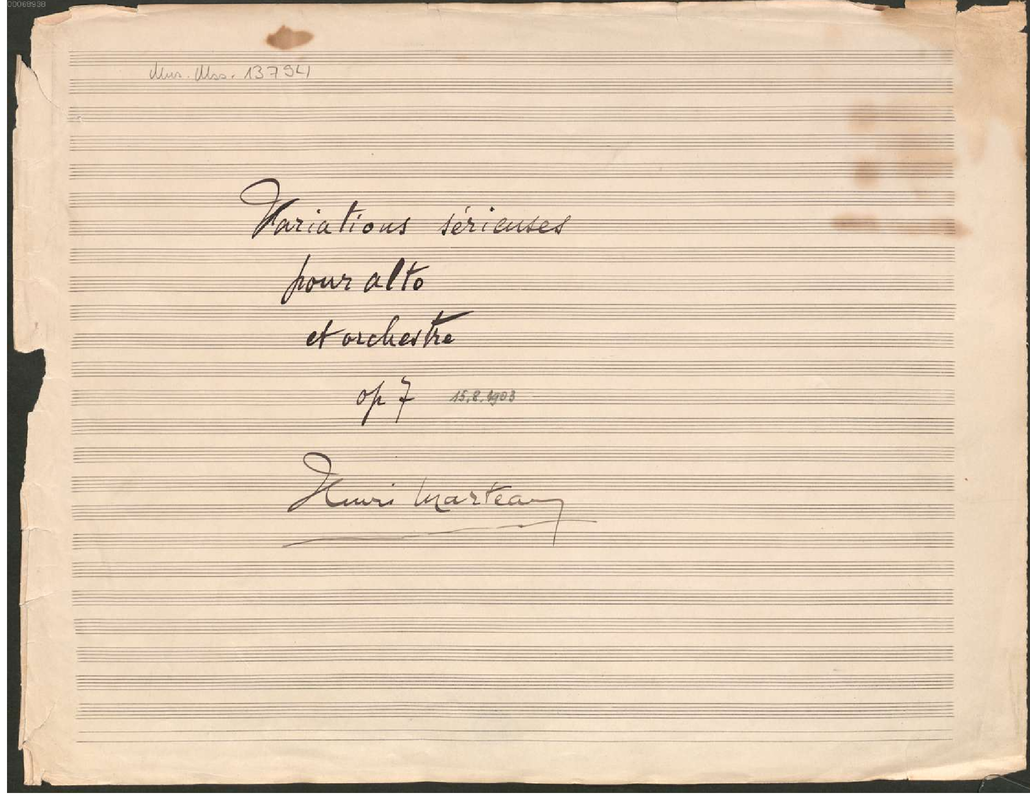 00068938
Mus. Mss. 13794
Variations sérieuses
pour alto
et orchestre
op 7 15.8.1903
Henri Marteau